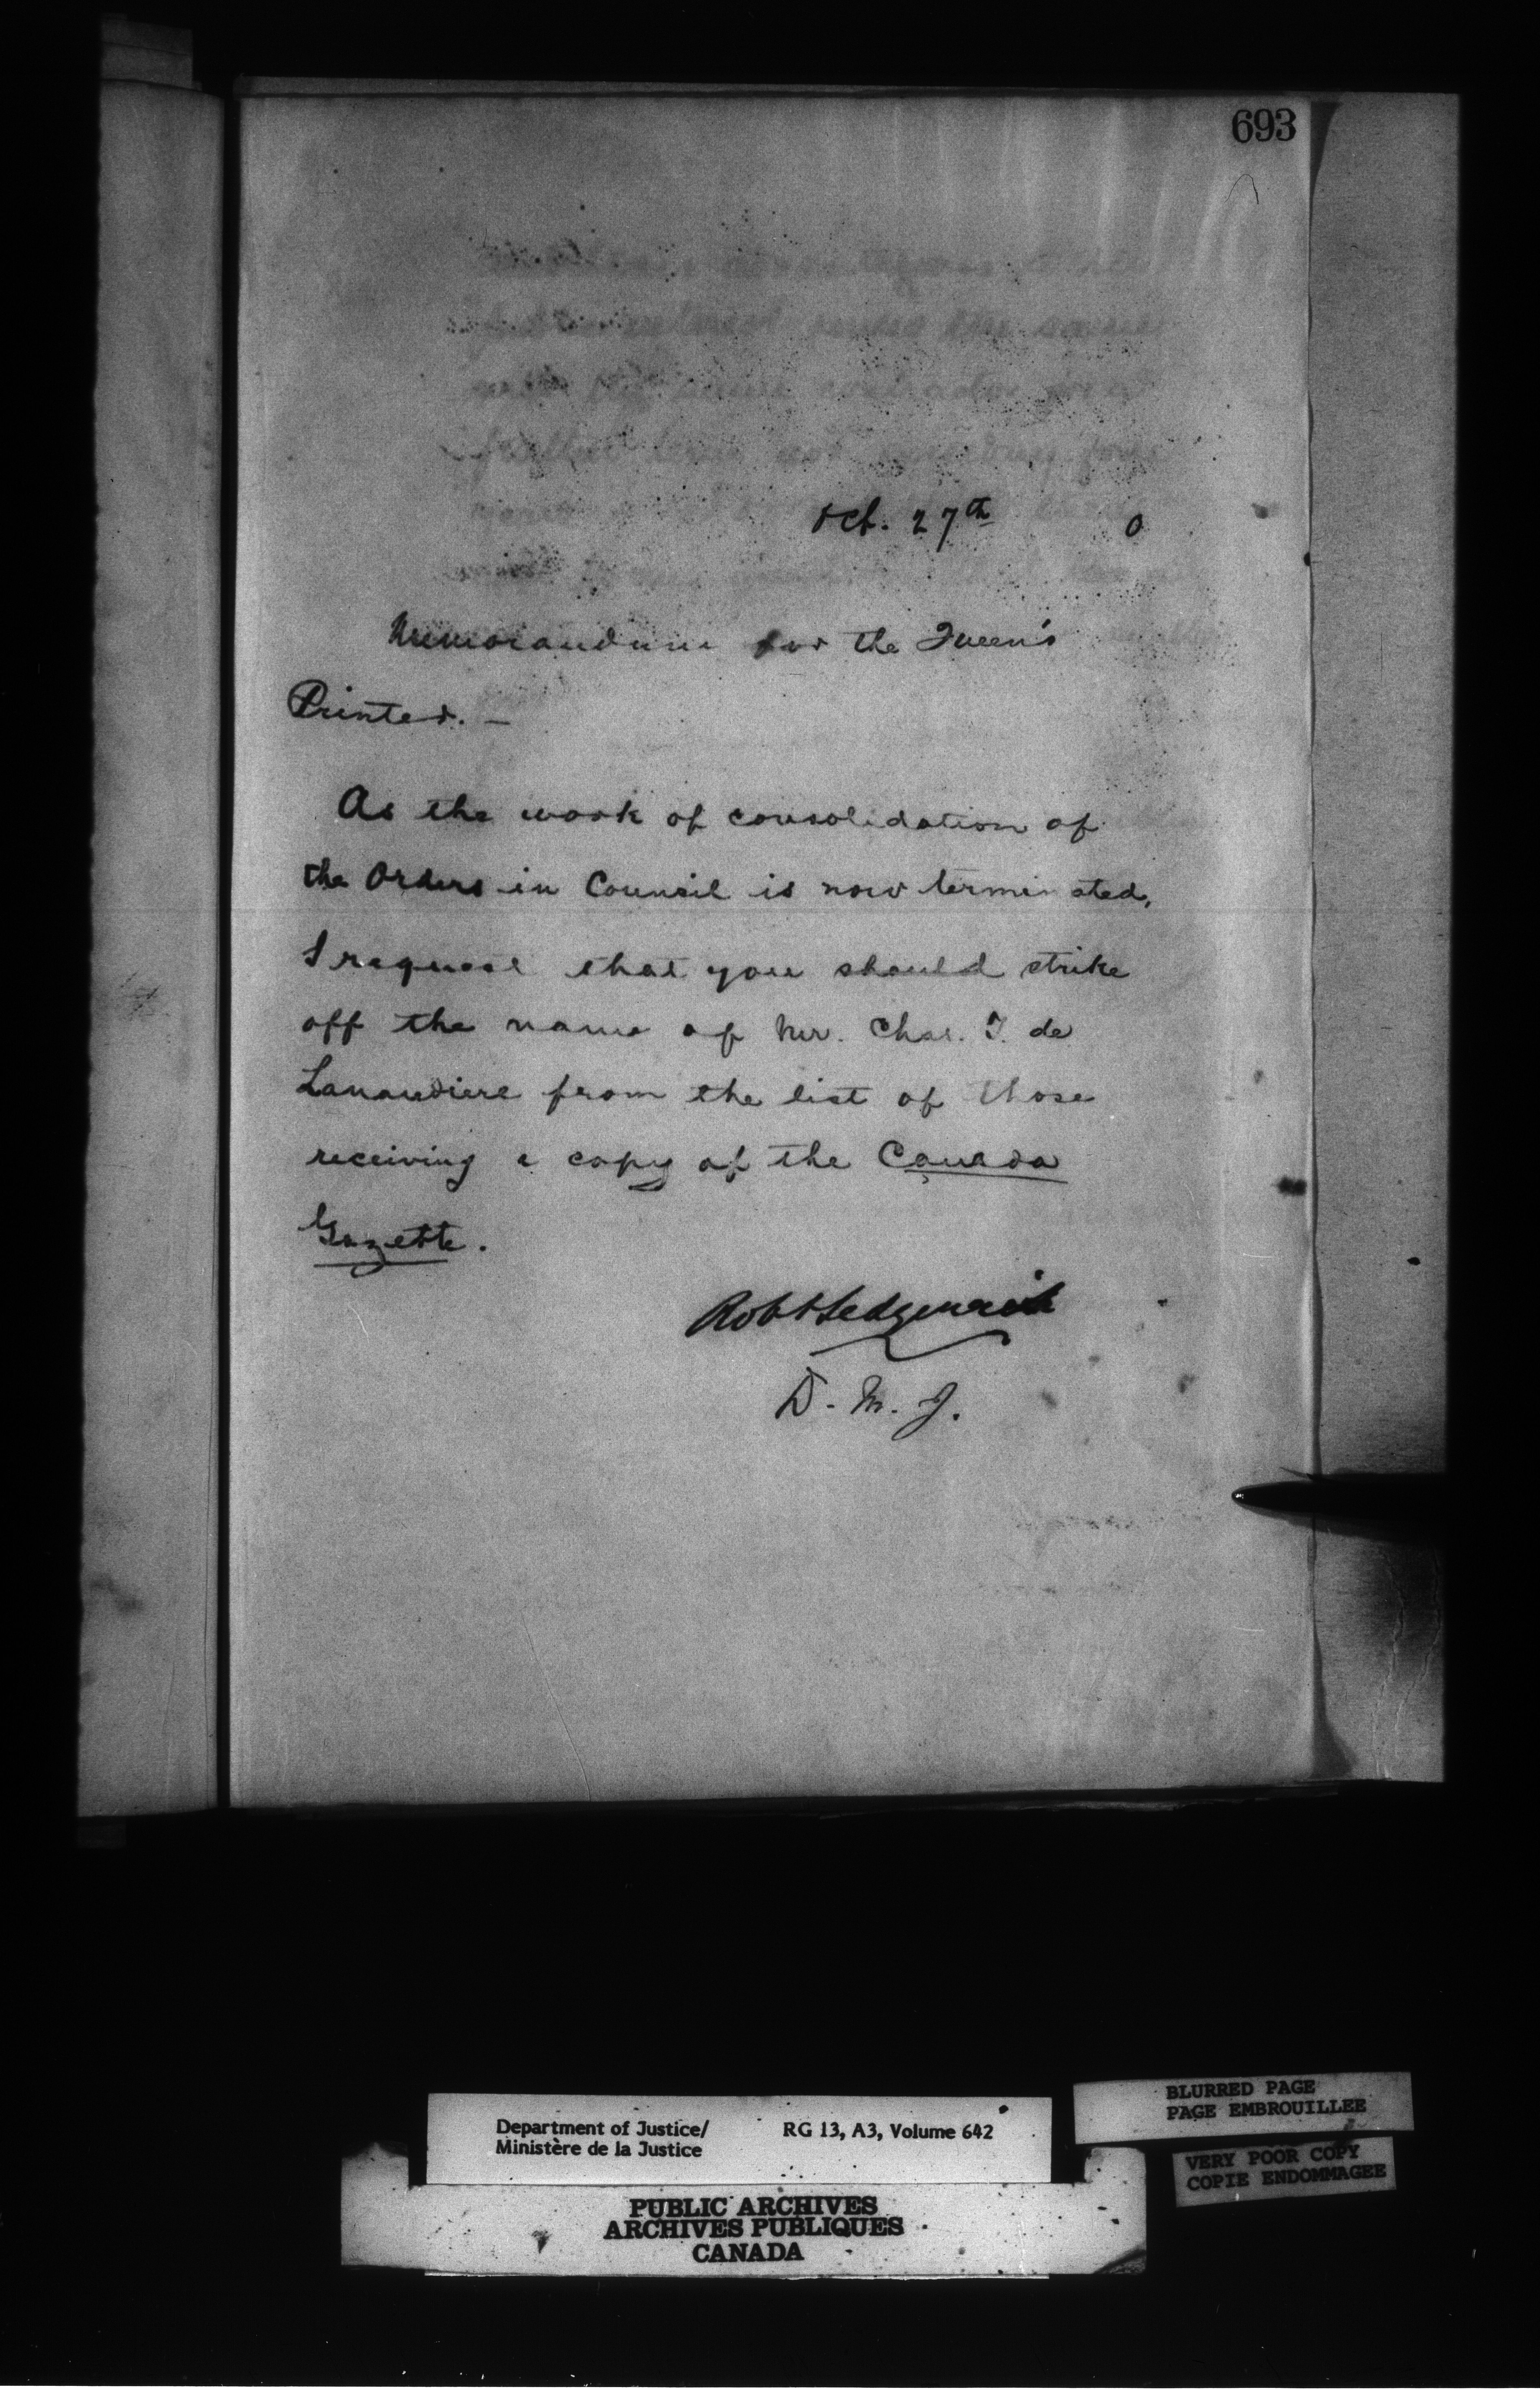 693
Oct. 27th 0
Memorandum for the Queen's
Printer. —
As the work of consolidation of
the Orders in Council is now terminated,
I request that you should strike
off the name of Mr. Chas. T. de
Lanaudiere from the list of those
receiving a copy of the Canada
Gazette.
Robt Sedgewick
D. M. J.
Department of Justice/ RG 13, A3, Volume 642
Ministère de la Justice
BLURRED PAGE
PAGE EMBROUILLEE
VERY POOR COPY
COPIE ENDOMMAGEE
PUBLIC ARCHIVES
ARCHIVES PUBLIQUES
CANADA